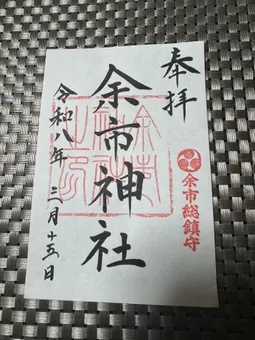 奉拝
余市総鎮守
余市神社
令和八年 月十五日